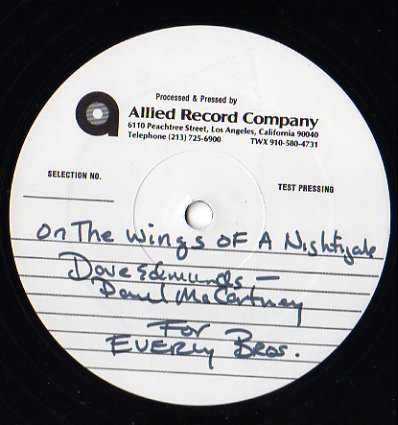 Processed & Pressed by
a Allied Record Company
6110 Peachtree Street, Los Angeles, California 90040
Telephone (213) 725-6900 TWX 910-580-4731
SELECTION NO. TEST PRESSING
On The Wings OF A Nightigale
Dave Edmunds —
Paul McCartney
For
EVERLY Bros.